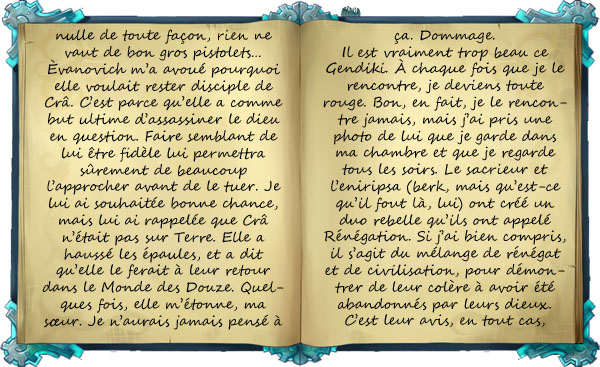 nulle de toute façon, rien ne
vaut de bon gros pistolets...
Èvanovich m'a avoué pourquoi
elle voulait rester disciple de
Crâ. C'est parce qu'elle a comme
but ultime d'assassiner le dieu
en question. Faire semblant de
lui être fidèle lui permettra
sûrement de beaucoup
l'approcher avant de le tuer. Je
lui ai souhaitée bonne chance,
mais lui ai rappelée que Crâ
n'était pas sur Terre. Elle a
haussé les épaules, et a dit
qu'elle le ferait à leur retour
dans le Monde des Douze. Quel-
ques fois, elle m'étonne, ma
sœur. Je n'aurais jamais pensé à
ça. Dommage.
Il est vraiment trop beau ce
Gendiki. À chaque fois que je le
rencontre, je deviens toute
rouge. Bon, en fait, je le rencon-
tre jamais, mais j'ai pris une
photo de lui que je garde dans
ma chambre et que je regarde
tous les soirs. Le sacrieur et
l'eniripsa (berk, mais qu'est-ce
qu'il fout là, lui) ont créé un
duo rebelle qu'ils ont appelé
Rénégation. Si j'ai bien compris,
il s'agit du mélange de rénégat
et de civilisation, pour démon-
trer de leur colère à avoir été
abandonnés par leurs dieux.
C'est leur avis, en tout cas,